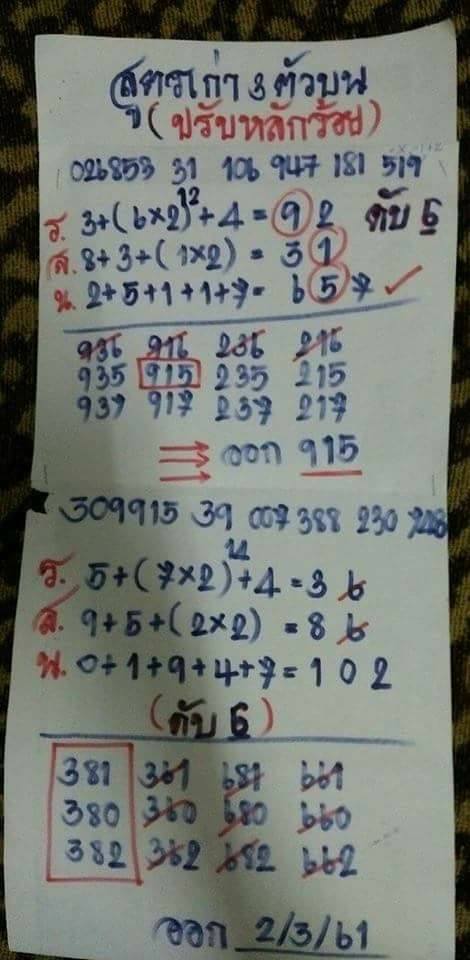 สูตรเก่า 3 ตัวบน
(ปรับหลักร้อย)
026853 31 106 947 181 519
12
ร. 3+(6×2)+4 = 9 2 ดับ 6
ส. 8+3+(1×2) = 3 1
น. 2+5+1+1+7= 6 5 7 ✓
936 916 236 216
935 915 235 215
937 917 237 217
ออก 915
309915 39 007 388 230
14
ร. 5+(7×2)+4 = 3 6
ส. 9+5+(2×2) = 8 6
น. 0+1+9+4+7= 1 0 2
(ดับ 6)
381 361 681 661
380 360 680 660
382 362 682 662
ออก 2/3/61